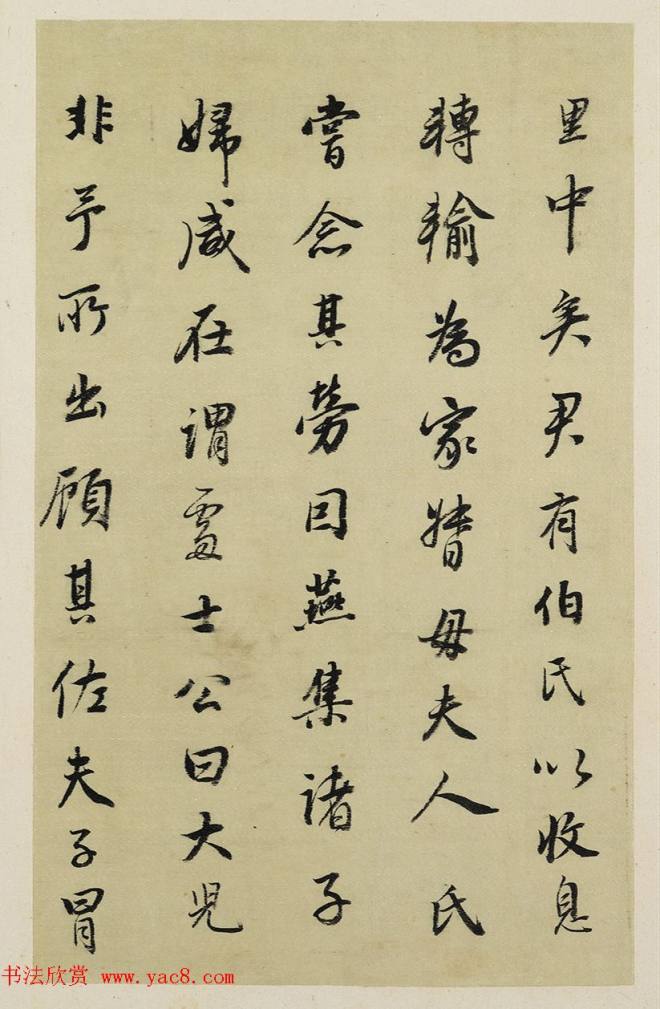 里中矣君有伯氏以收息
轉輸為家督母夫人氏
嘗念其勞因燕集諸子
婦咸在謂處士公曰大児
非予所出顧其佐夫子冒
书法欣赏 www.yac8.com